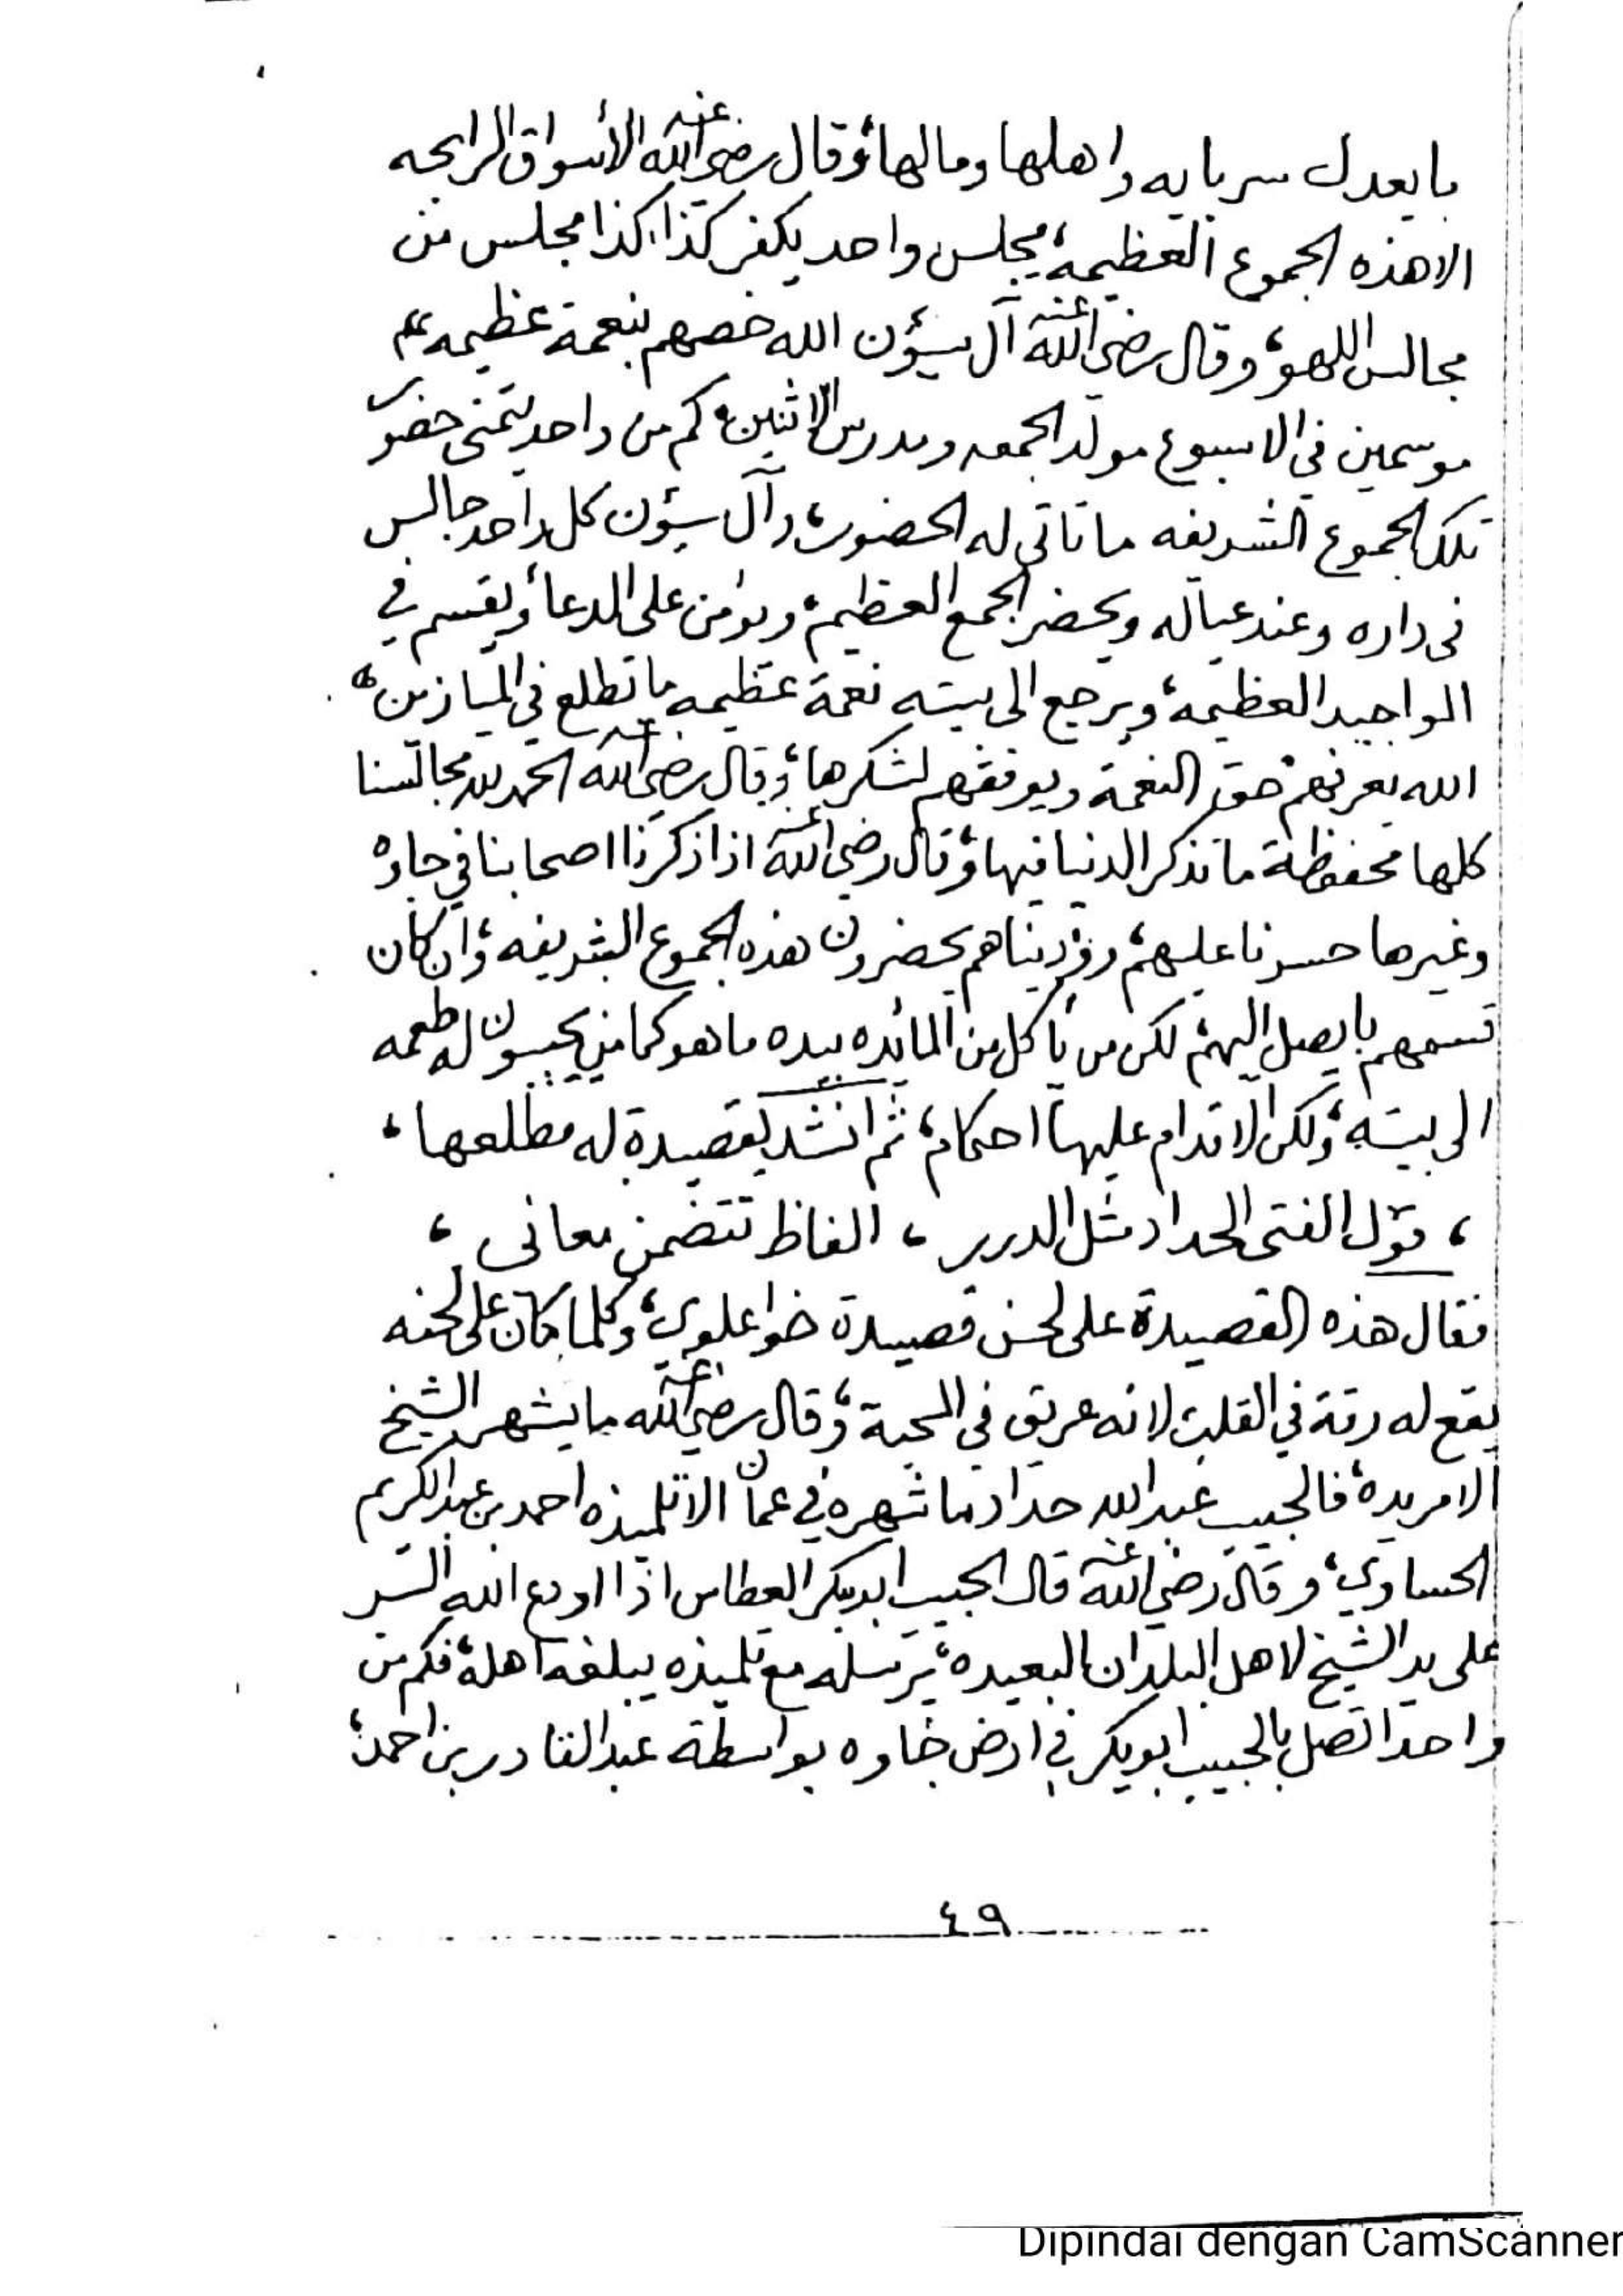 ما يعدل سربايه واهلها ومالها، وقال رضي الله عنه الأسواق الرابحه
الا هذه الجموع العظيمة، مجلس واحد يكفر كذا كذا مجلس من
مجالس اللهو، وقال رضي الله عنه آل سيؤن الله خصهم بنعمة عظيمه
موسمين في الاسبوع مولد الجمعه ومدرس الاثنين، كم من واحد يتمنى حضور
تلك الجموع الشريفه ما تاتي له الحضور، وآل سيؤن كل واحد جالس
في داره وعند عياله ويحضر الجمع العظيم، ويؤمن على الدعاء ويقسم في
المواجيد العظيمة، ويرجع الى بيته نعمة عظيمه ما تطلع في الميازين،
الله يعرفهم حق النعمة ويوفقهم لشكرها، وقال رضي الله عنه الحمد لله مجالسنا
كلها محفوظة ما تذكر الدنيا فيها، وقال رضي الله عنه اذا ذكرنا اصحابنا في جاوه
وغيرها حسرنا عليهم، ووديناهم يحضرون هذه الجموع الشريفه، وان كان
قسمهم با يصل اليهم، لكن من يأكل من المائده بيده ما هو كما من يجيبون له طعمه
الى بيته، ولكن الاقدام عليها احكام، ثم انشد بقصيدة له مطلعها،
، قول الفتى الحداد مثل الدرر ، الفاظ تتضمن معاني ،
فقال هذه القصيدة على لحن قصيدة خوا علوي، وكلما كان على لحنه
يقع له رقة في القلب، لانه عريق في المحبة، وقال رضي الله عنه ما يشهر الشيخ
الا مريده، فالحبيب عبدالله حداد ما شهره في عمان الا تلميذه احمد بن عبدالكريم
الحساوي، وقال رضي الله عنه قال الحبيب ابوبكر العطاس اذا اودع الله السر
على يد الشيخ لاهل البلدان البعيده، يرسله مع تلميذه يبلغه اهله، فكم من
واحد اتصل بالحبيب ابوبكر في ارض جاوه بواسطة عبدالقادر بن احمد،
٤٩
Dipindai dengan CamScanner